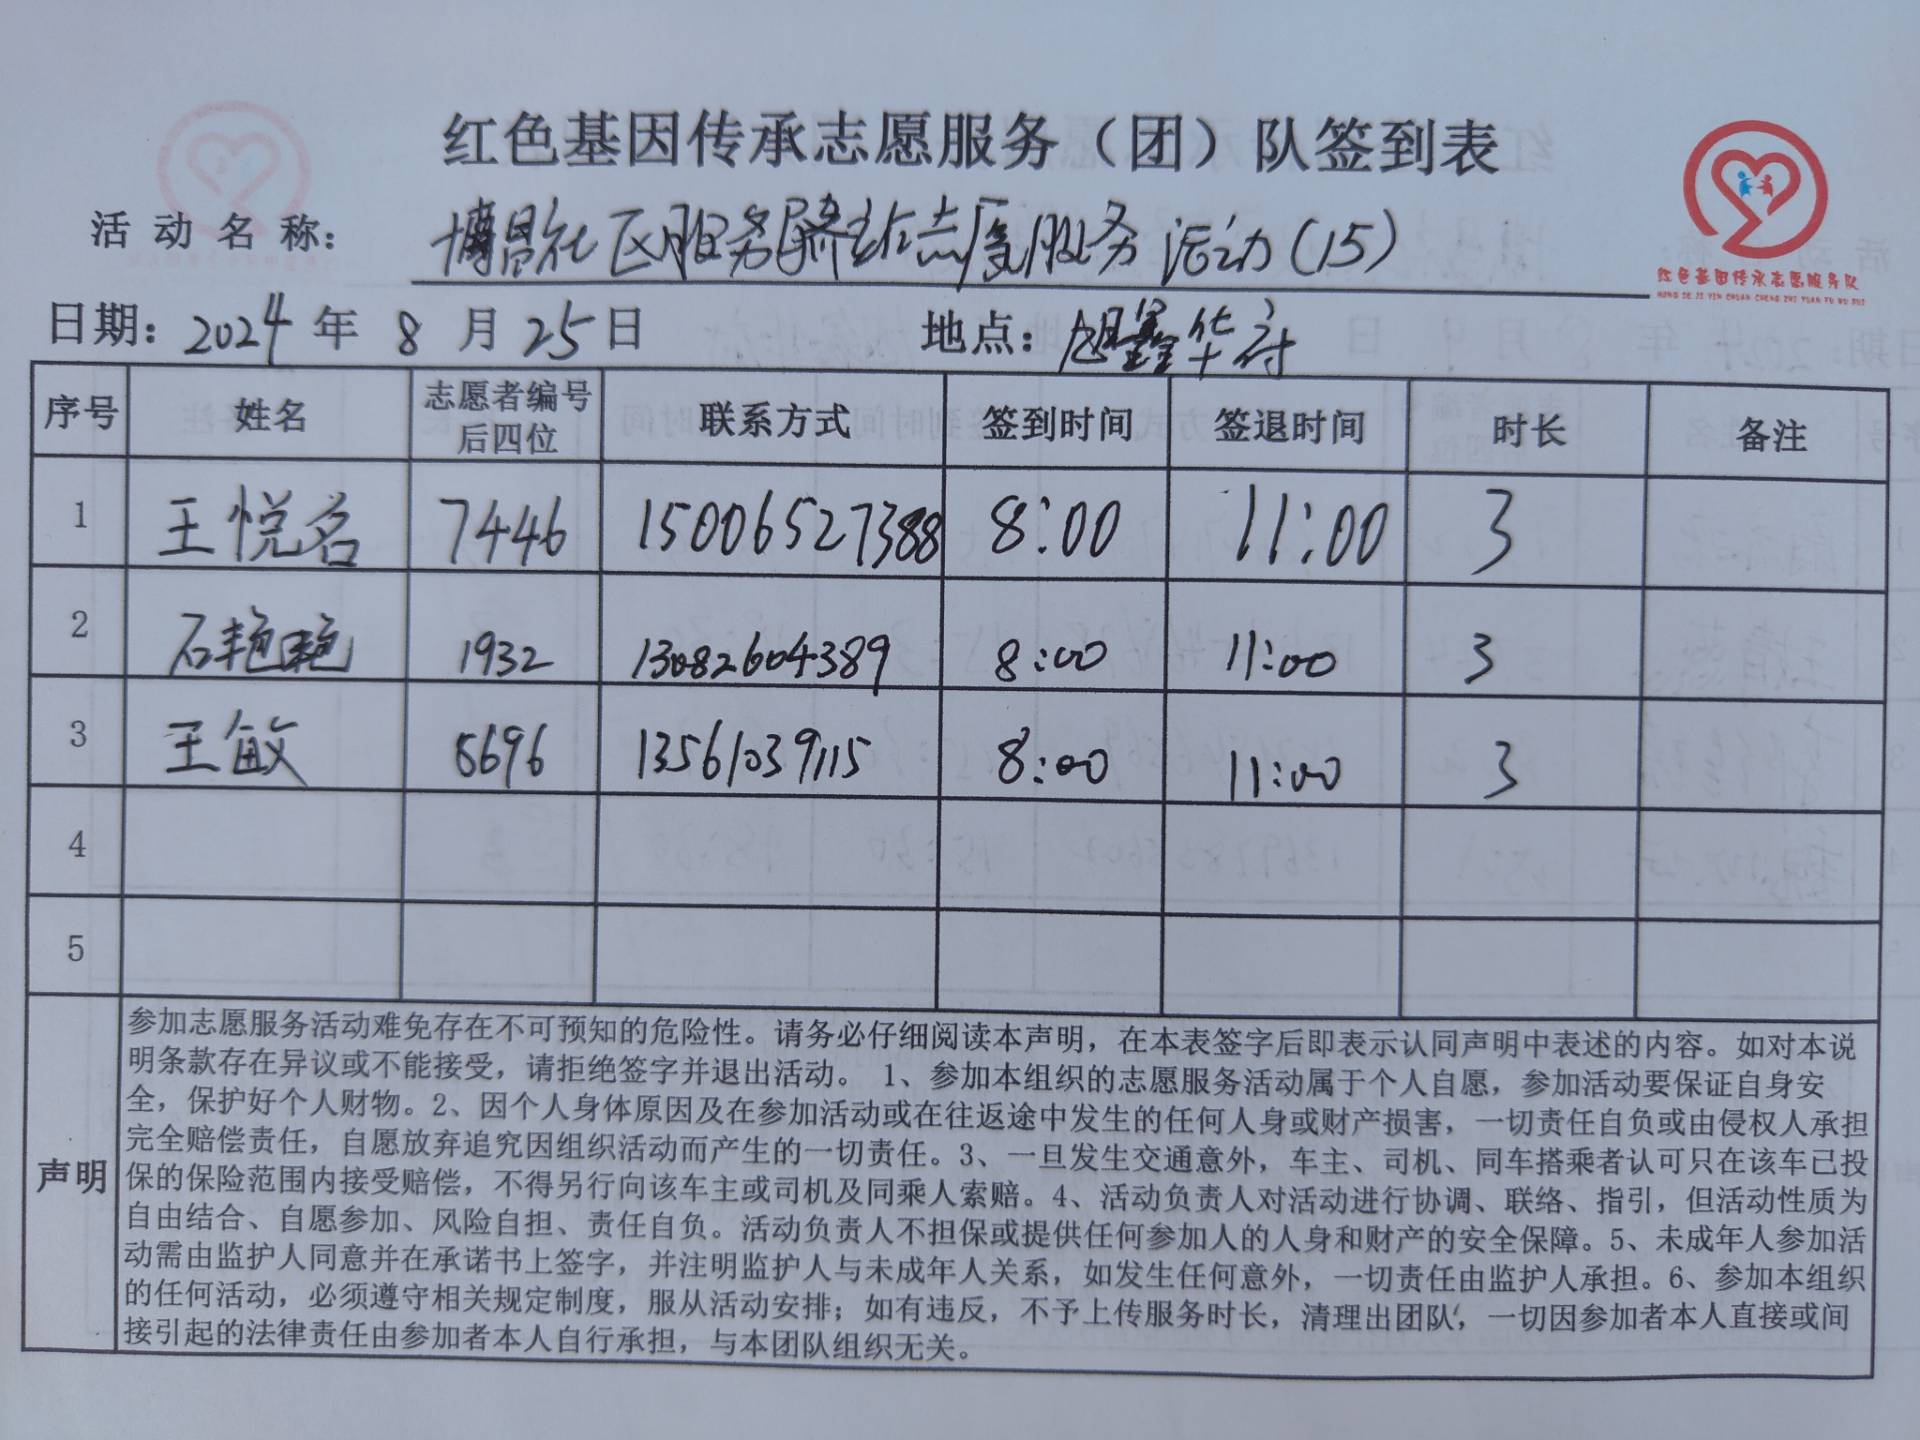 红色基因传承志愿服务（团）队签到表
活动名称： 博昌社区服务驿站志愿服务活动(15)
红色基因传承志愿服务队
HONG SE JI YIN CHUAN CHENG ZHI YUAN FU WU DUI
日期：2024年 8 月 25日 地点：旭鑫华府
序号 姓名 志愿者编号后四位 联系方式 签到时间 签退时间 时长 备注
1 王悦名 7446 15006527388 8:00 11:00 3
2 石艳艳 1932 13082604389 8:00 11:00 3
3 王敏 6696 13561039115 8:00 11:00 3
4
5
声明
参加志愿服务活动难免存在不可预知的危险性。请务必仔细阅读本声明，在本表签字后即表示认同声明中表述的内容。如对本说
明条款存在异议或不能接受，请拒绝签字并退出活动。 1、参加本组织的志愿服务活动属于个人自愿，参加活动要保证自身安
全，保护好个人财物。2、因个人身体原因及在参加活动或在往返途中发生的任何人身或财产损害，一切责任自负或由侵权人承担
完全赔偿责任，自愿放弃追究因组织活动而产生的一切责任。3、一旦发生交通意外，车主、司机、同车搭乘者认可只在该车已投
保的保险范围内接受赔偿，不得另行向该车主或司机及同乘人索赔。4、活动负责人对活动进行协调、联络、指引，但活动性质为
自由结合、自愿参加、风险自担、责任自负。活动负责人不担保或提供任何参加人的人身和财产的安全保障。5、未成年人参加活
动需由监护人同意并在承诺书上签字，并注明监护人与未成年人关系，如发生任何意外，一切责任由监护人承担。6、参加本组织
的任何活动，必须遵守相关规定制度，服从活动安排；如有违反，不予上传服务时长，清理出团队，一切因参加者本人直接或间
接引起的法律责任由参加者本人自行承担，与本团队组织无关。